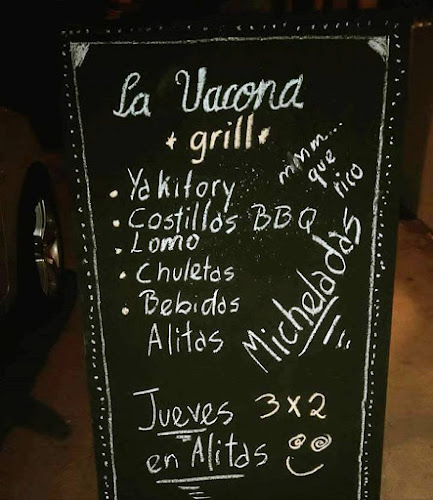 La Vacona
grill
mmm...
que
rico
· Yakitory
· Costillas BBQ
· Lomo
· Chuletas
· Bebidas
Alitas
Micheladas
Jueves 3x2
en Alitas